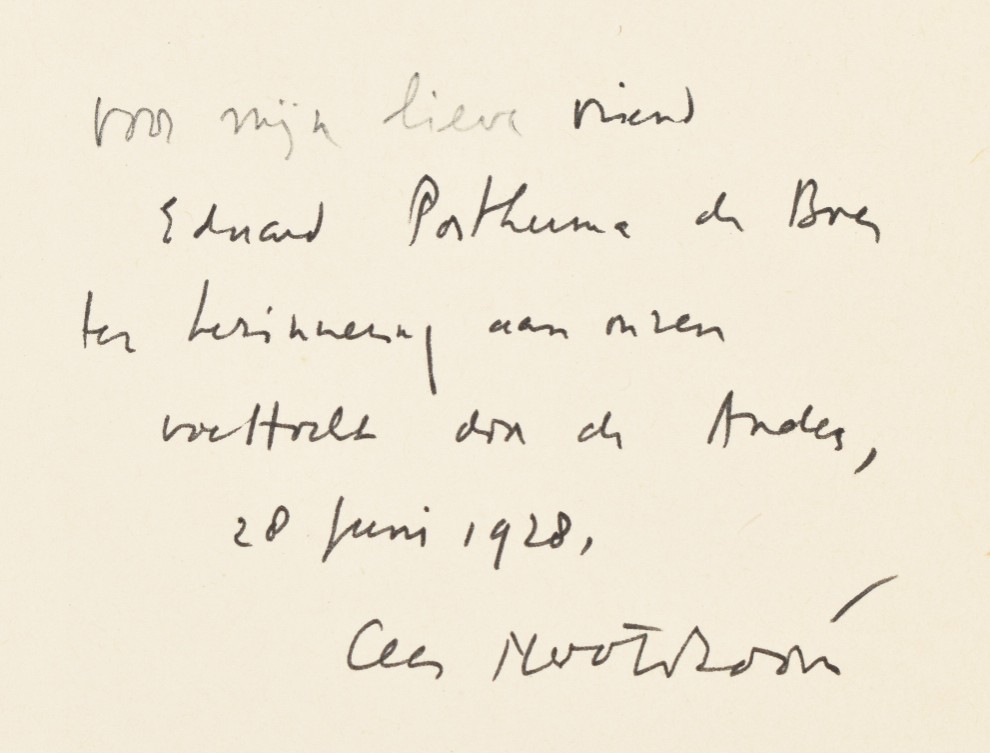 voor mijn lieve vriend
Eduard Posthuma de Boer
ter herinnering aan onzen
voettocht door de Andes,
28 Juni 1928,
Cees Nooteboom